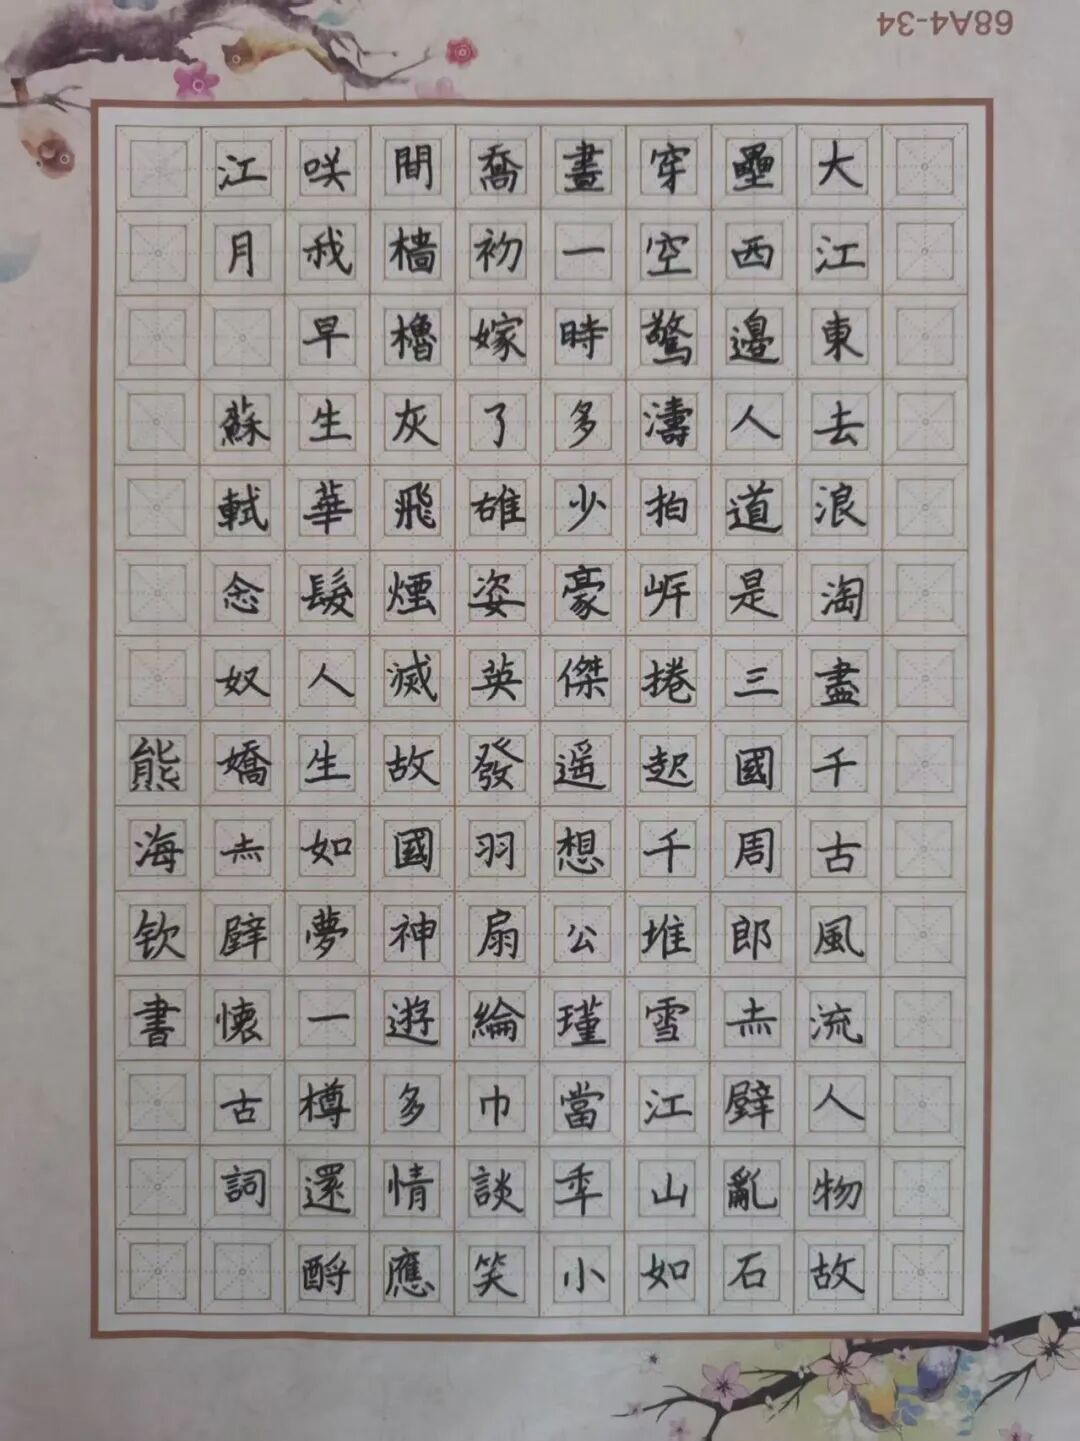 大江東去浪淘盡千古風流人物故
壘西邊人道是三國周郎赤壁亂石
穿空驚濤拍岍捲起千堆雪江山如
畫一時多少豪傑遥想公瑾當年小
喬初嫁了雄姿英發羽扇綸巾談笑
間檣櫓灰飛煙滅故國神遊多情應
咲我早生華髮人生如夢一樽還酹
江月 蘇軾念奴嬌赤壁懷古詞
熊海钦書
68A4-34